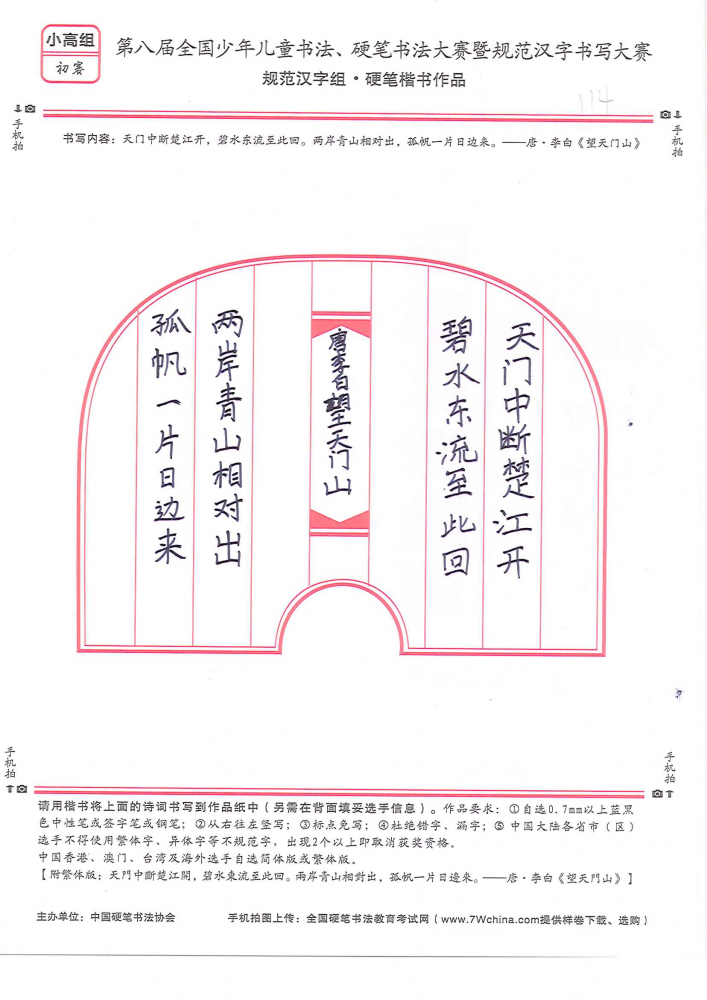 小高组
初赛
第八届全国少年儿童书法、硬笔书法大赛暨规范汉字书写大赛
规范汉字组·硬笔楷书作品
114
手机拍
手机拍
书写内容：天门中断楚江开，碧水东流至此回。两岸青山相对出，孤帆一片日边来。——唐·李白《望天门山》
天门中断楚江开
碧水东流至此回
唐李白望天门山
两岸青山相对出
孤帆一片日边来
手机拍
手机拍
请用楷书将上面的诗词书写到作品纸中（另需在背面填妥选手信息）。作品要求：①自选0.7mm以上蓝黑
色中性笔或签字笔或钢笔；②从右往左竖写；③标点免写；④杜绝错字、漏字；⑤中国大陆各省市（区）
选手不得使用繁体字、异体字等不规范字，出现2个以上即取消获奖资格。
中国香港、澳门、台湾及海外选手自选简体版或繁体版。
【附繁体版：天門中斷楚江開，碧水東流至此回。兩岸青山相對出，孤帆一片日邊來。——唐·李白《望天門山》】
主办单位：中国硬笔书法协会 手机拍图上传：全国硬笔书法教育考试网（www.7Wchina.com提供样卷下载、选购）